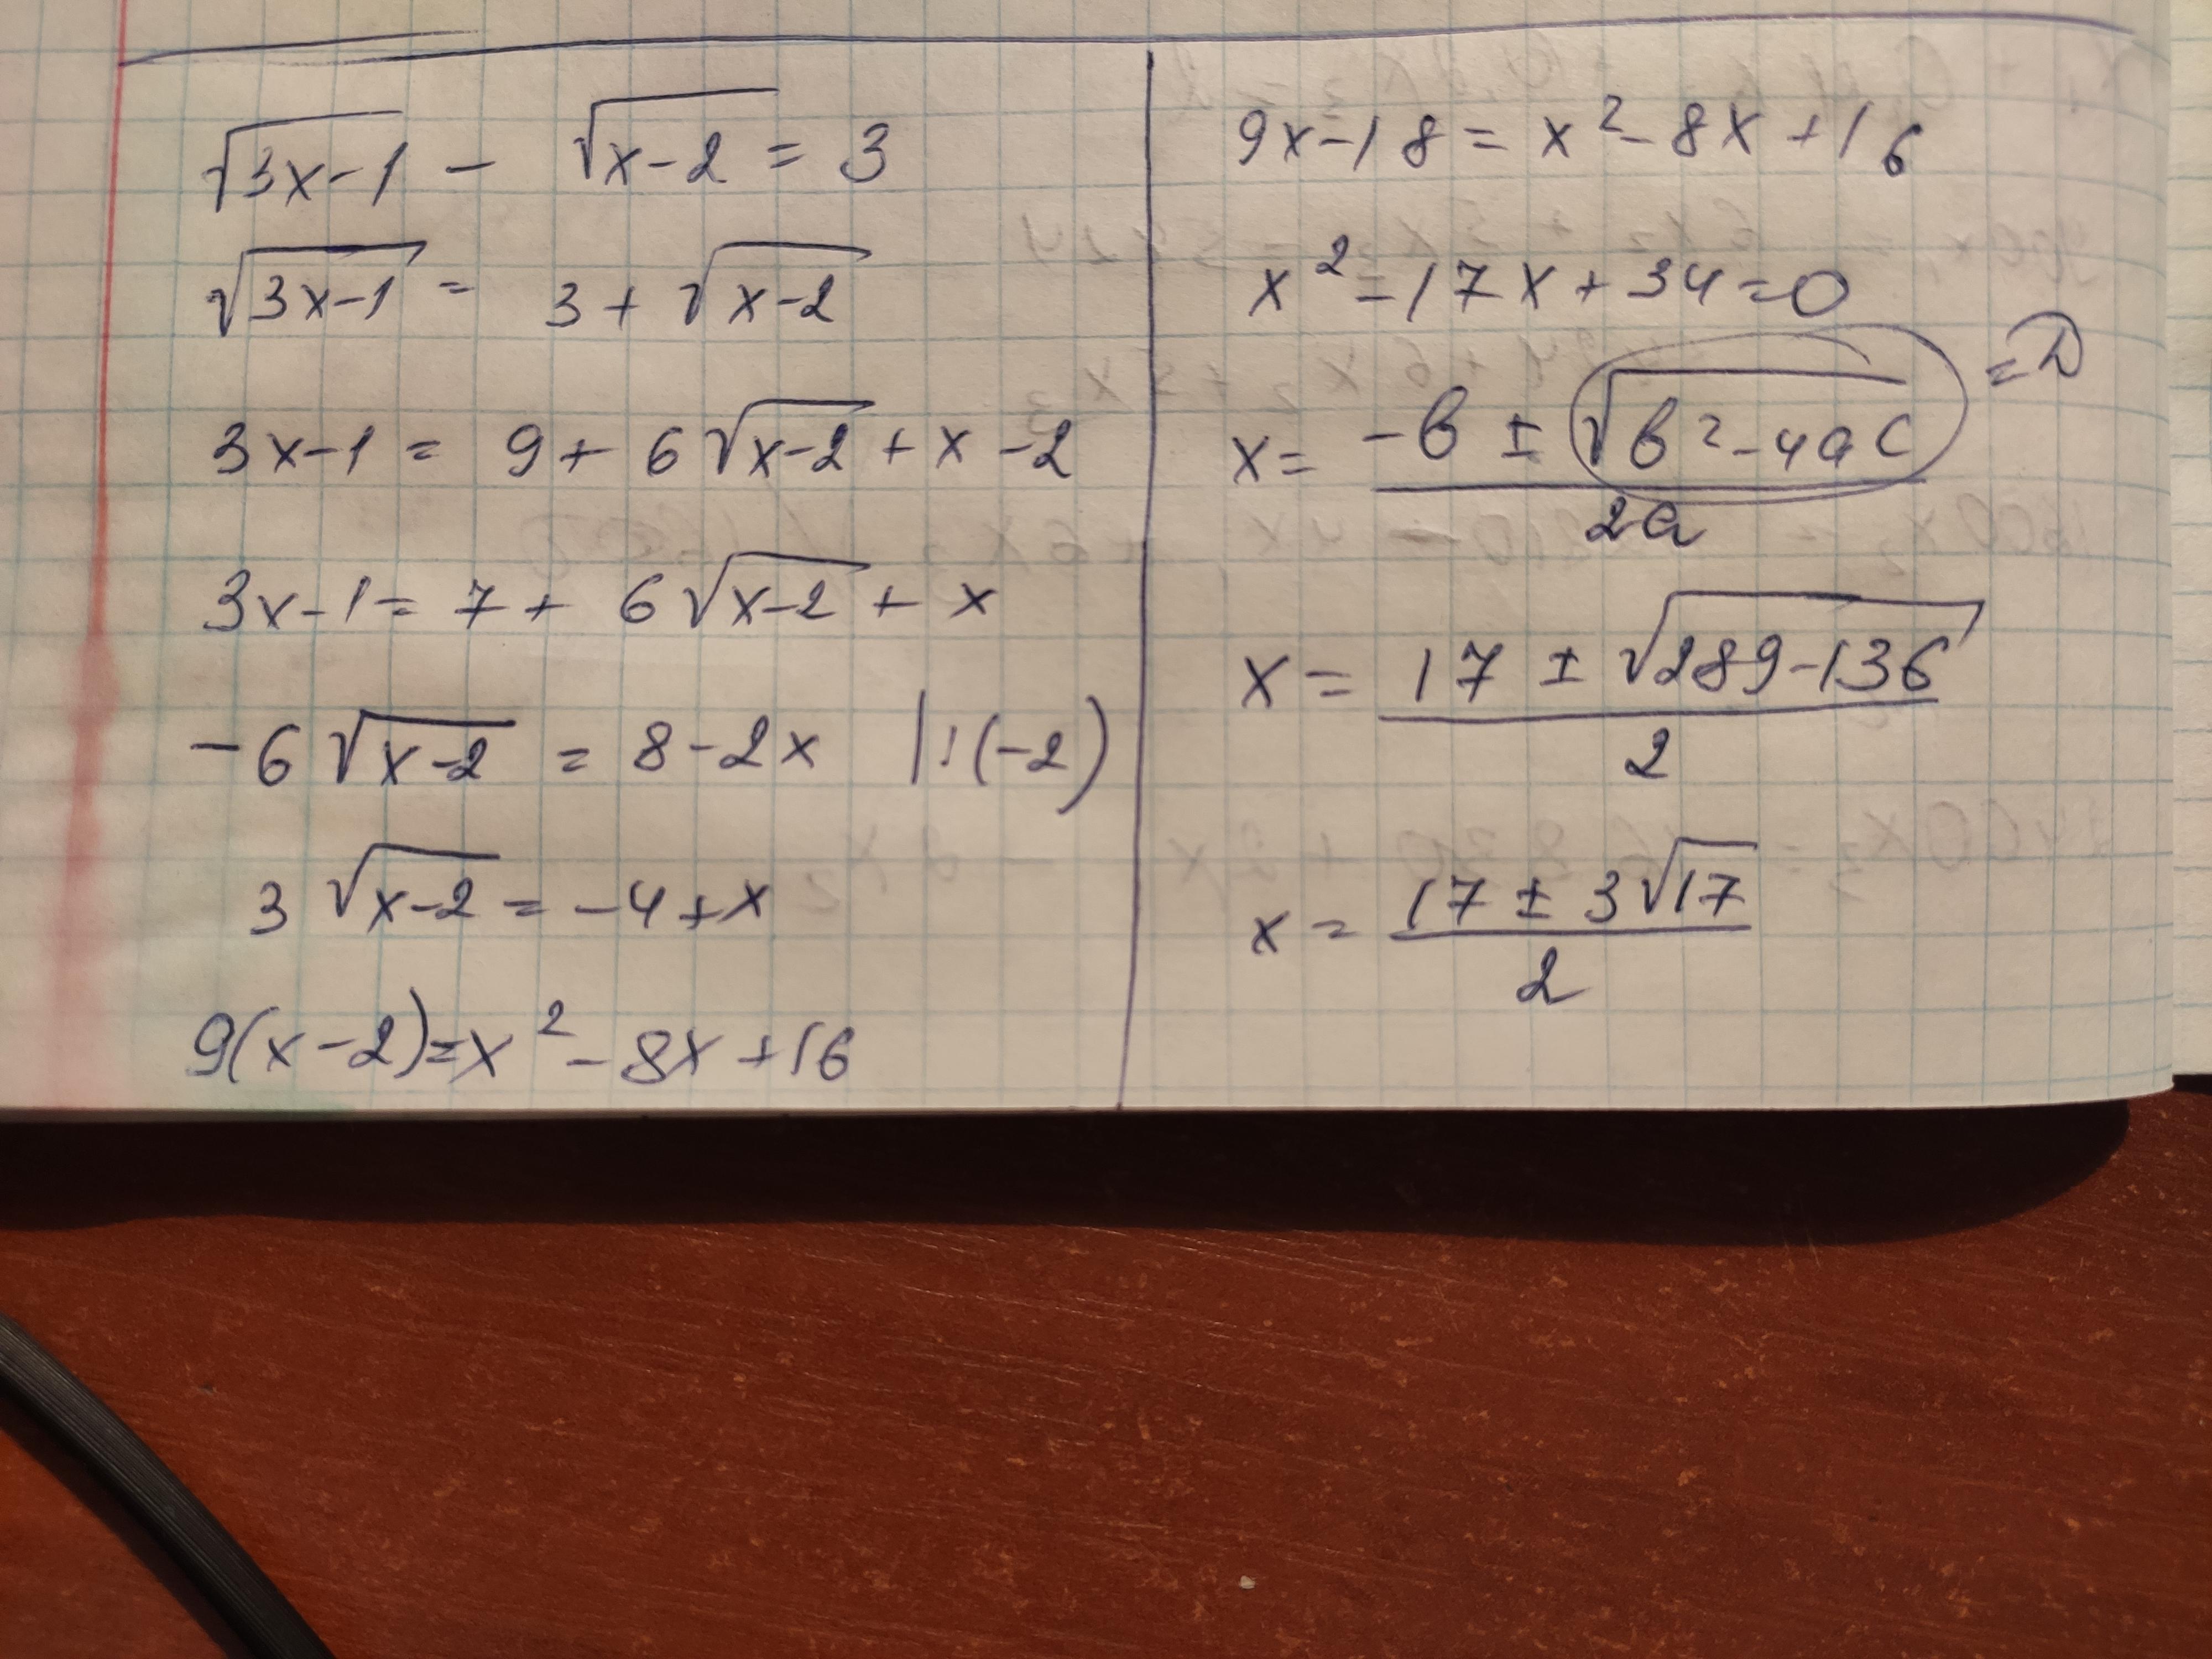 √3x-1 - √x-2 = 3
√3x-1 = 3 + √x-2
3x-1 = 9 + 6√x-2 + x - 2
3x-1 = 7 + 6√x-2 + x
-6√x-2 = 8-2x |:(-2)
3√x-2 = -4+x
9(x-2)=x²-8x+16
9x-18 = x²-8x+16
x²-17x+34=0
x = -b ± √b²-4ac / 2a = D
x = 17 ± √289-136 / 2
x = 17 ± 3√17 / 2